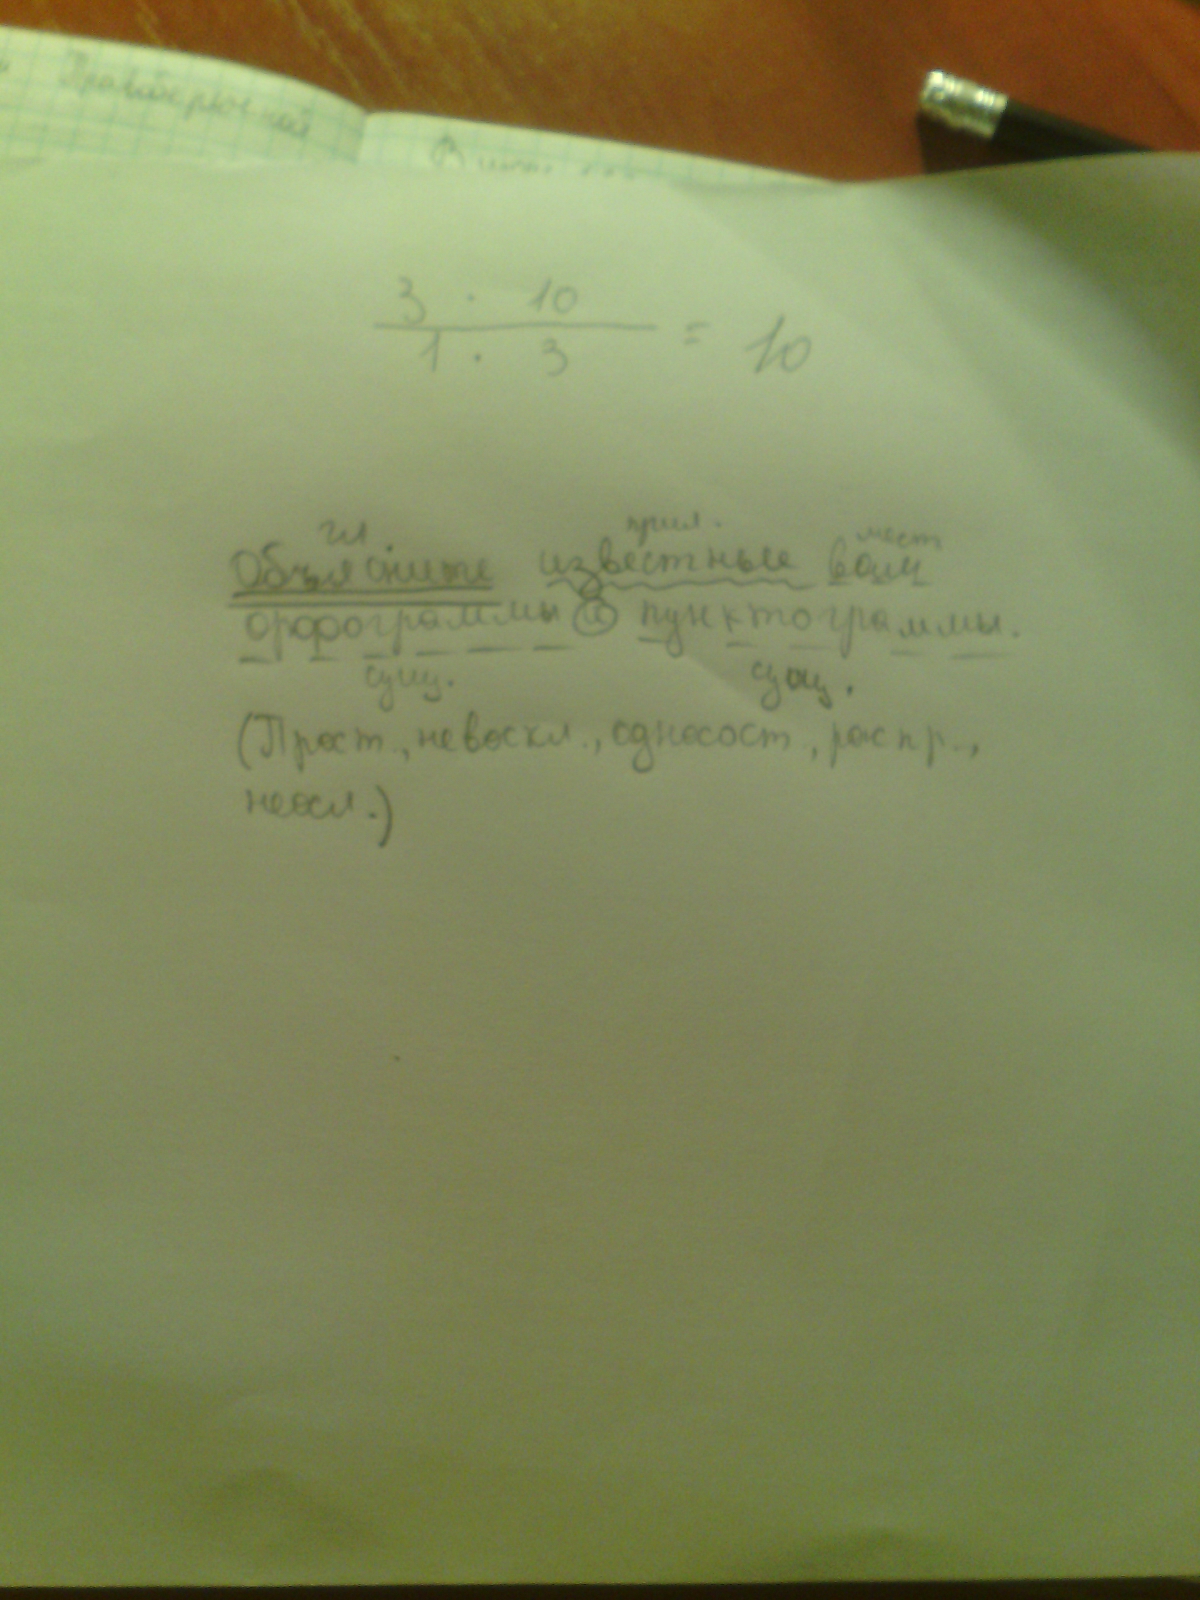 3 · 10
1 · 3
= 10
гл прил. мест
Объясните известные вам
орфограммы и пунктограммы.
сущ. сущ.
(Прост., невоскл., односост., распр.,
неосл.)